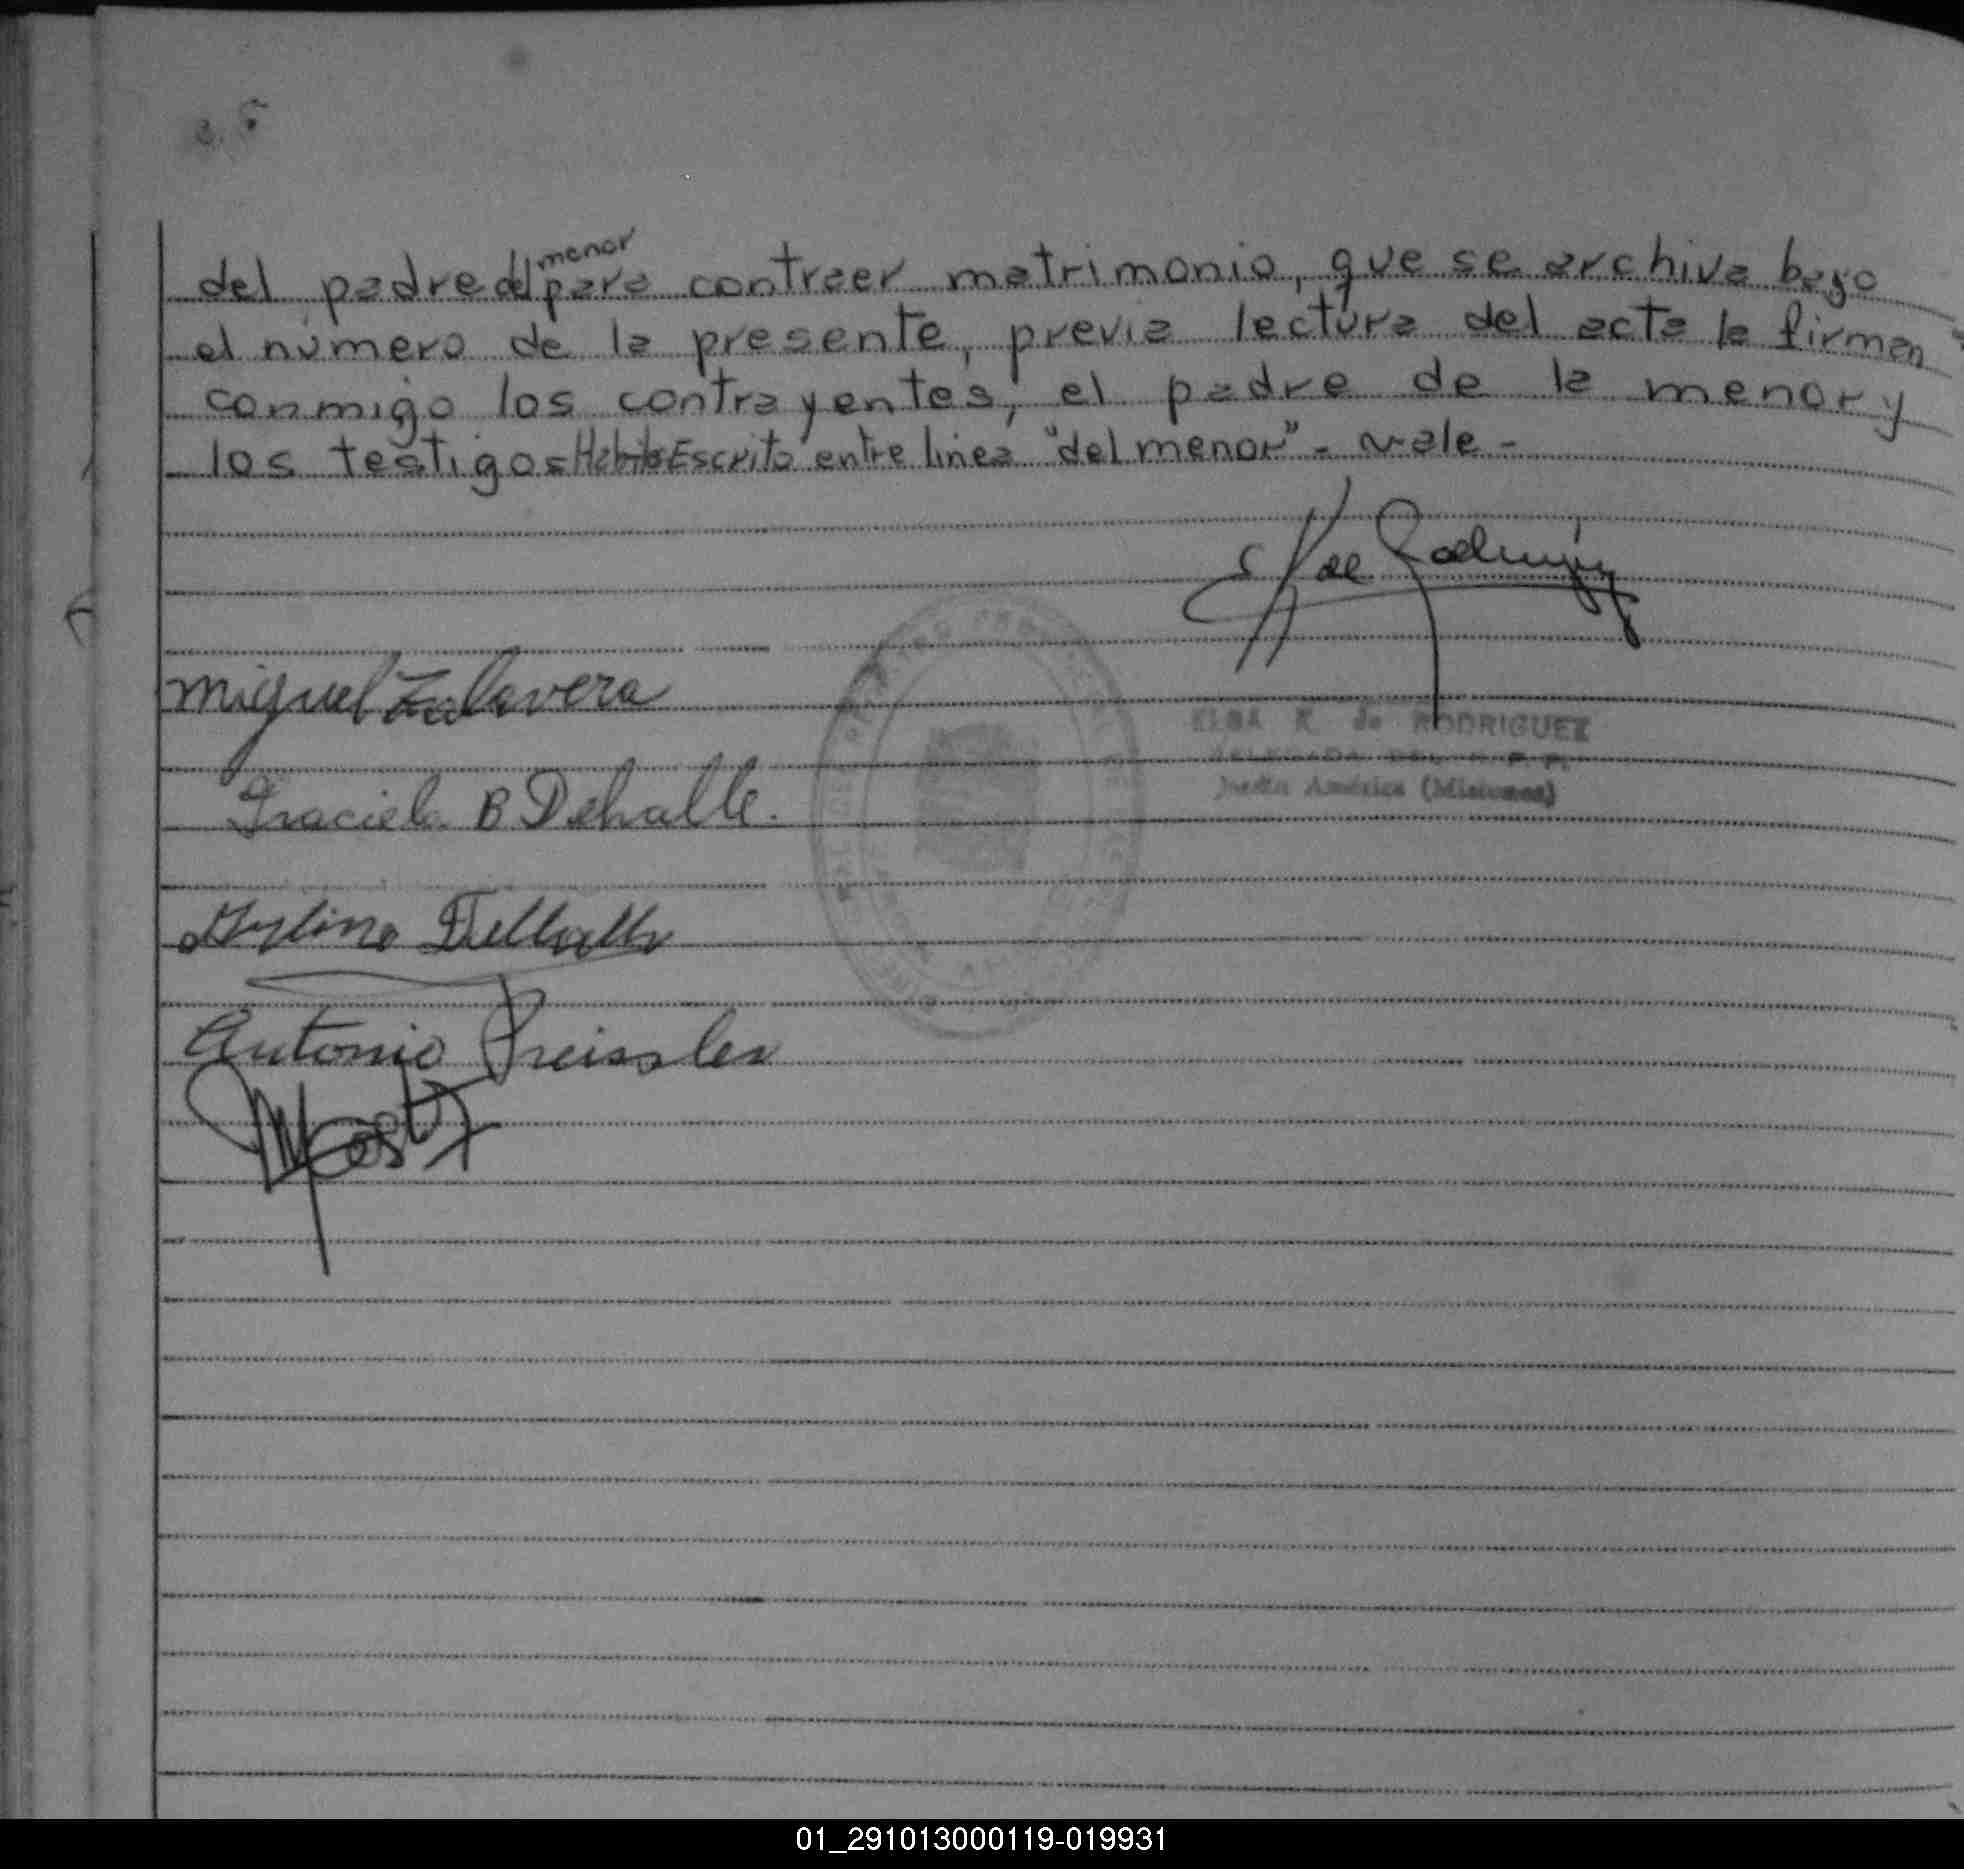 del padre del menor para contraer matrimonio, que se archiva bajo
el número de la presente, previa lectura del acta la firman
conmigo los contrayentes, el padre de la menor y
los testigos Escrito entre linea "del menor" - vale -
E. de Rodriguez
Miguel Zalavera
ELSA R. de RODRIGUEZ
DELEGADA DEL R. P.
Jardin América (Misiones)
Graciela B Dehalle.
Antonio Preissler
01_291013000119-019931